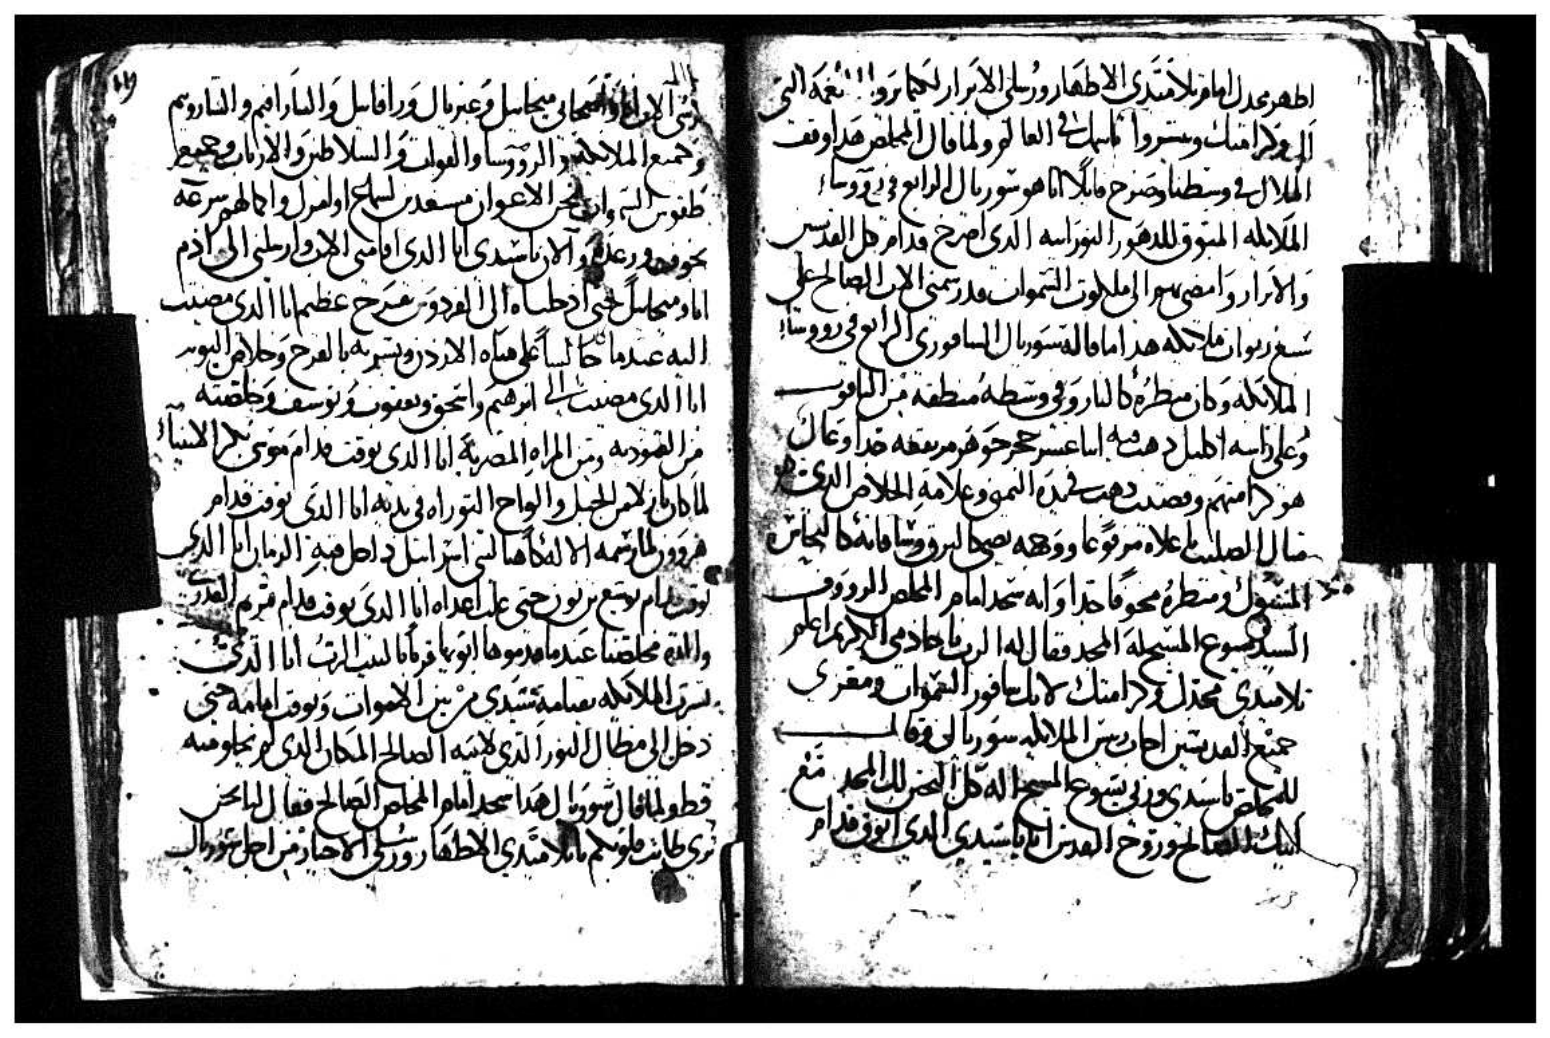 اظهر مجدك امام تلاميذي الاطهار ورسلي الابرار لكيما يروا نعمة التي
لك وكرامتك ويبشروا باسمك في العالم ولما قال المخلص هدا وقف
الملاك في وسطنا وصرح قايلاً انا هو سوريال الرابع في رووسا
الملايكه المبوق للدهور النورانيه الدي اصرخ قدام كل القديسين
والابرار وامضي بهم الى ملكوت السموات قد رسمني الاب الصالح على
سبع ربوات ملايكه هدا ما قاله سوريال السافوري الرابع في رووسا
الملايكه وكان منظره كالنار وفي وسطه منطقه من الياقوت
وعلى راسه اكليل دهب فيه اتنا عشر حجر جوهر مرتفعه جدا وعال
هو كرامتهم وقضيب دهب في يده اليمنى وعلامة الخلاص الذي هو
متال الصليب باعلاه مرفوعا ووجهه يضي كالبرق وساقاته كالنحاس
المسبوك ومنظره مخوفا جدا وانه سجد امام المخلص الرووف
السيد يسوع المسيح له المجد فقال له الرب يا خادمي الكريم اعلم
تلاميدي بمجدك وكرامتك لانك سافور السموات ومعزي
جميع القديسين اجاب رييس الملايكه سوريال وقال
للمخلص يا سيدي وربي يسوع المسيح اله كل البحر لك المجد مع
ابيك الصالح وروح القدس انا يا سيدي الدي ابوق قدام
كرسي الاب انا واصحابي ميخاييل وغبريال ورافاييل والسارافيم والشاروبيم
وجميع الملايكه والرووسا والقوات والسلاطين والارباب وجميع
طغوس السموات نحن الاعوان مستعدين لسماع اوامرك واكمالهم سرعه
بخوف ورعده والان يا سيدي انا الدي اقامني الاب وارسلني الى ادم
انا وميخاييل حتى ادخلناه الى الفردوس بفرح عظيم انا الدي مضيت
اليه عندما كان جالساً على مياه الاردن وبشرته بالفرح وخلاص البنين
انا الدي مضيت الى ابرهيم واسحق ويعقوب ويوسف وخلصته
من العبوديه ومن المراه المصريه انا الدي بوقت قدام موسى بكر الانبياء
لما كان نازلا من الجبل والواح التوراه في يديه انا الدي بوقت قدام
هرون لما رسمه الاله كاهنا لبني اسراييل داخل قبة الزمان انا الدي
بوقت قدام يوشع بن نون حتى غلب اعداه انا الدي بوقت قدام مريم العدرى
والدة مخلصنا عندما قدموها ابويها قربانا لبيت الرب انا الدي
بشرت الملايكه بقيامة سيدي من بين الاموات وبوقت امامه حتى
دخل الى مظال النور الدي لابيه الصالح المكان الدي لم يحلو فيه
قط ولما قال سوريال هدا سجد امام المخلص الصالح فقال لنا نحن
ترى طابت قلوبكم يا تلاميدي الاطهار ورسلي الاخيار من اجل سوريال